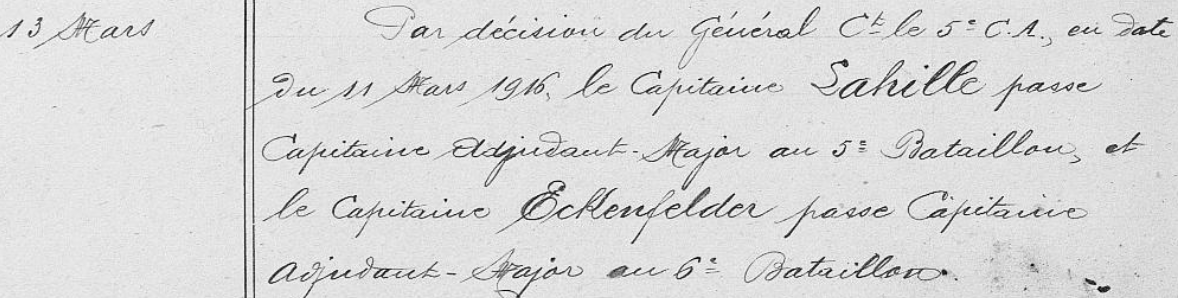 13 Mars
Par décision du Général Ct le 5e C.A., en date
du 11 Mars 1916, le Capitaine Lahille passe
Capitaine Adjudant-Major au 5e Bataillon, et
le Capitaine Ecklenfelder passe Capitaine
Adjudant-Major au 6e Bataillon.